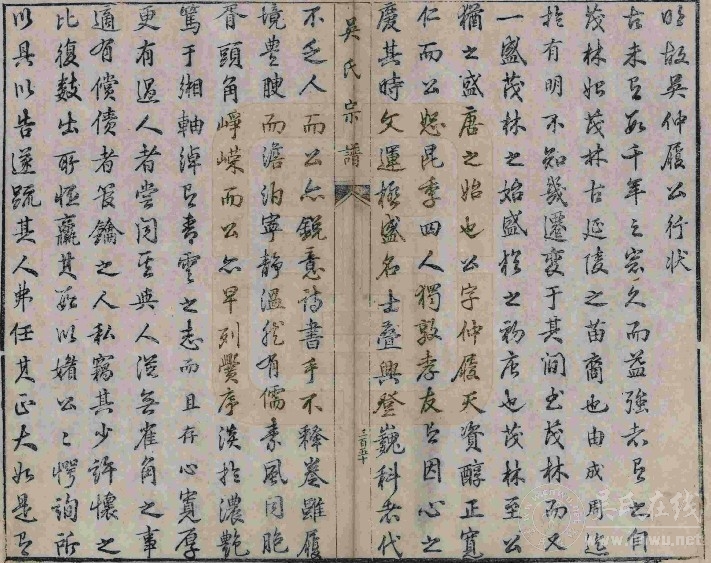 明故吳仲履公行状
古未有數千年之宗久而益強者有之自
茂林始茂林古延陵之苗裔也由成周迄
於有明不知幾遷變于其间尤茂林而又
一盛茂林之始盛於之初唐也茂林至公
猶之盛唐之始也公字仲履天資醇正寬
仁而公恕昆季四人獨敦孝友有因心之
慶其時文運極盛名士疊興登巍科者代
吳氏宗譜
三百五十
不乏人而公亦銳意詩書手不釋卷雖履
境豊腴而澹泊寧静溫然有儒素風同胞
胥頭角崢嶸而公亦早列黌序淡於濃艷
篤于缃軸綽有青雲之志而且存心寬厚
更有過人者嘗闻其與人從無雀角之事
適有償债者管鑰之人私竊其少許懷之
比復鼓出所恒贏其數以婼公公愕詢所
以具以告遂疏其人弗任其正大如是有
吴氏在线
.cn